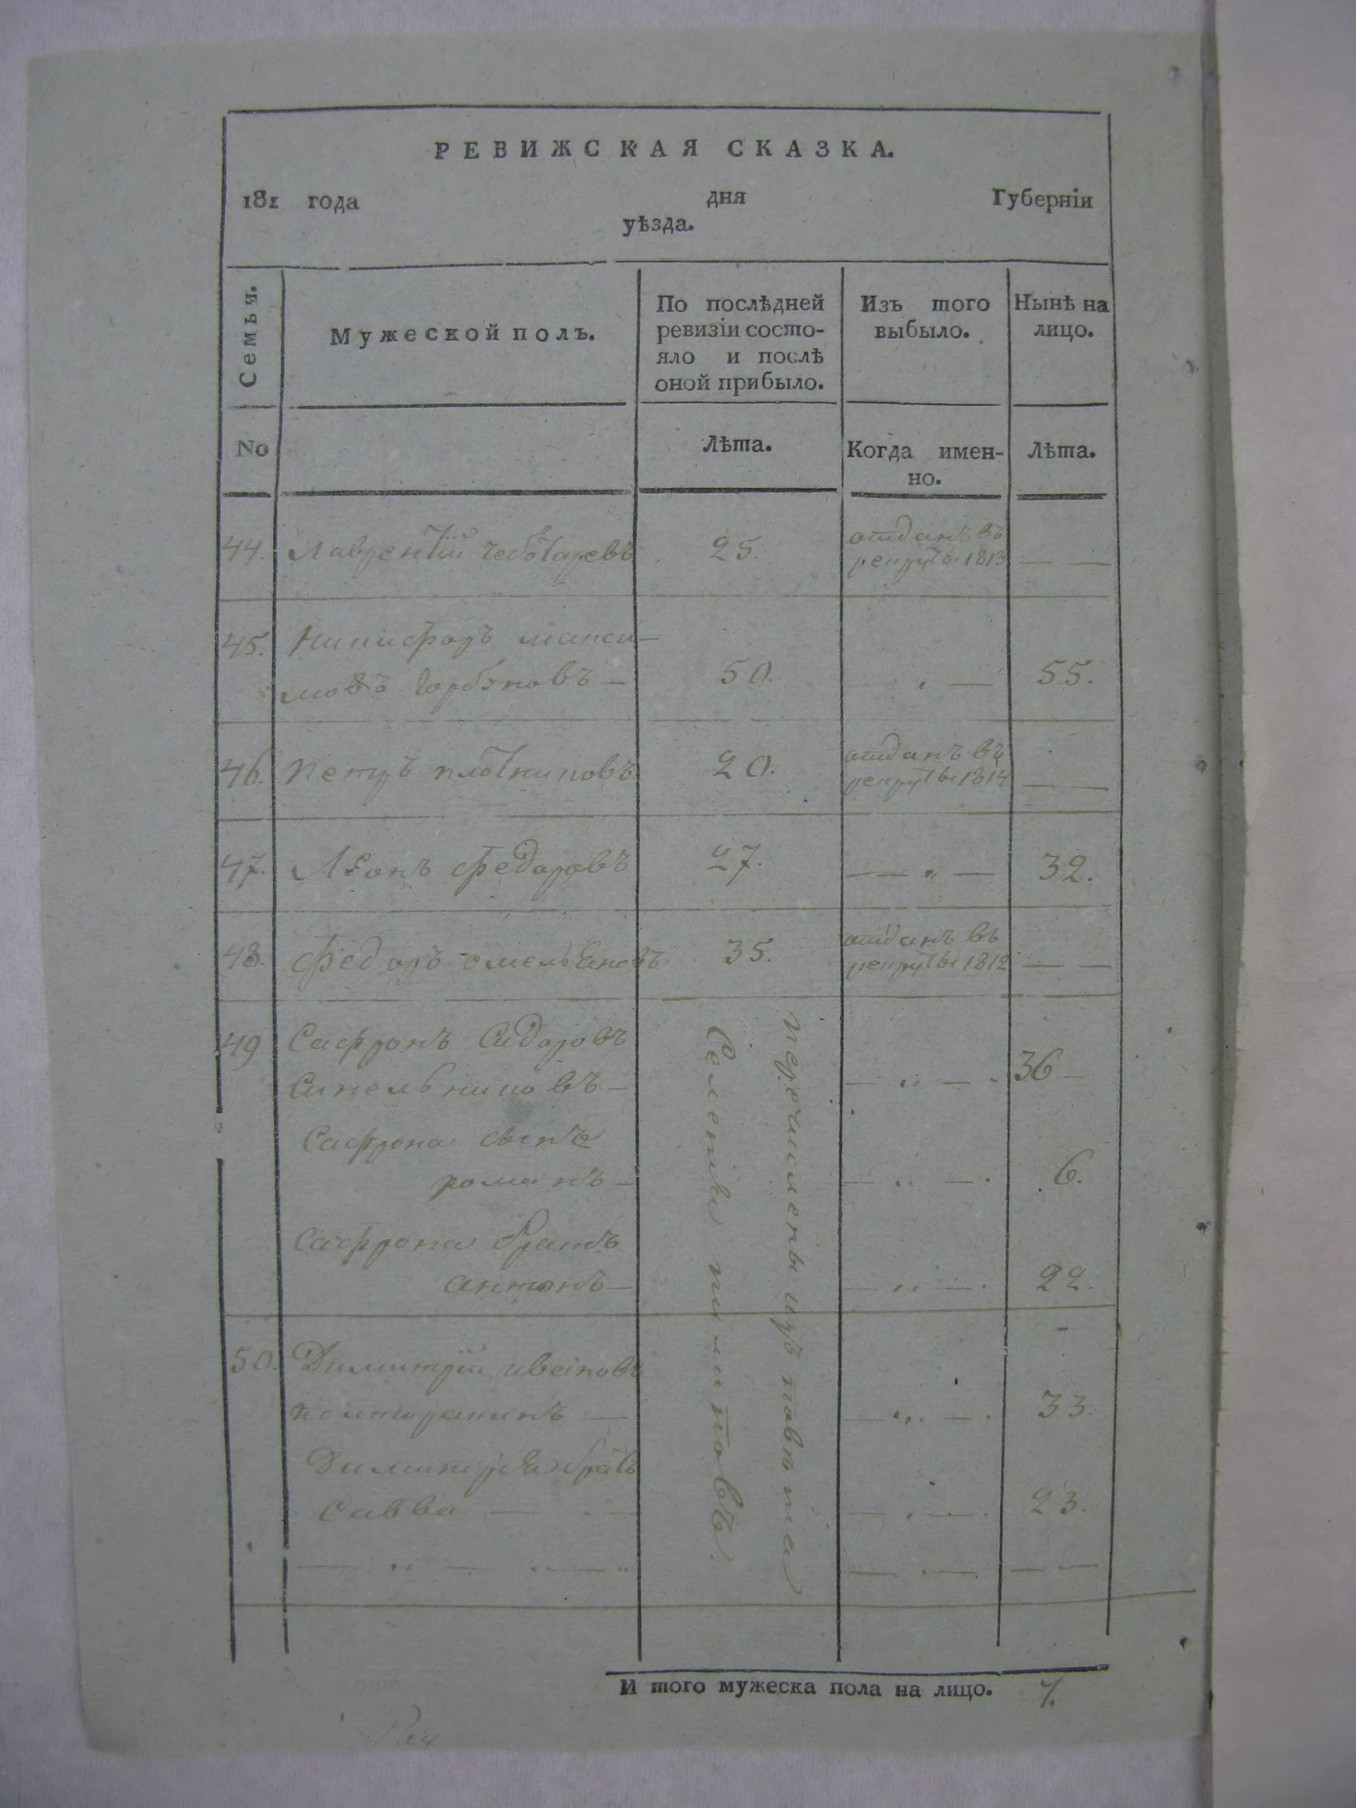 РЕВИЖСКАЯ СКАЗКА.
181 года дня Губерніи
уѣзда.
Семьи.
Мужеской полъ.
По послѣдней
ревизіи состо-
яло и послѣ
оной прибыло.
Изъ того
выбыло.
Нынѣ на
лицо.
No
Лѣта.
Когда имен-
но.
Лѣта.
44. Лаврентій Чеботаревъ 25. отданъ въ
рекруты 1813 — —
45. Никифоръ Макси-
мовъ Горбуновъ — 50. — 55.
46. Петръ Плотниковъ 20. отданъ въ
рекруты 1814 — —
47. Леонъ Федоровъ 27. — — „ — 32.
48. Федоръ Омельяновъ 35. отданъ въ
рекруты 1812 — —
49 Сафронъ Сидоровъ
Синельниковъ — — „ — 36 —
Сафрона сынъ
романъ — — „ — 6.
Сафрона братъ
антонъ — — „ — 22.
перечислены изъ
50. Димитрій Ивановъ
— „ — 33.
Димитрія братъ
Савва — 23.
И того мужеска пола на лицо. 7.